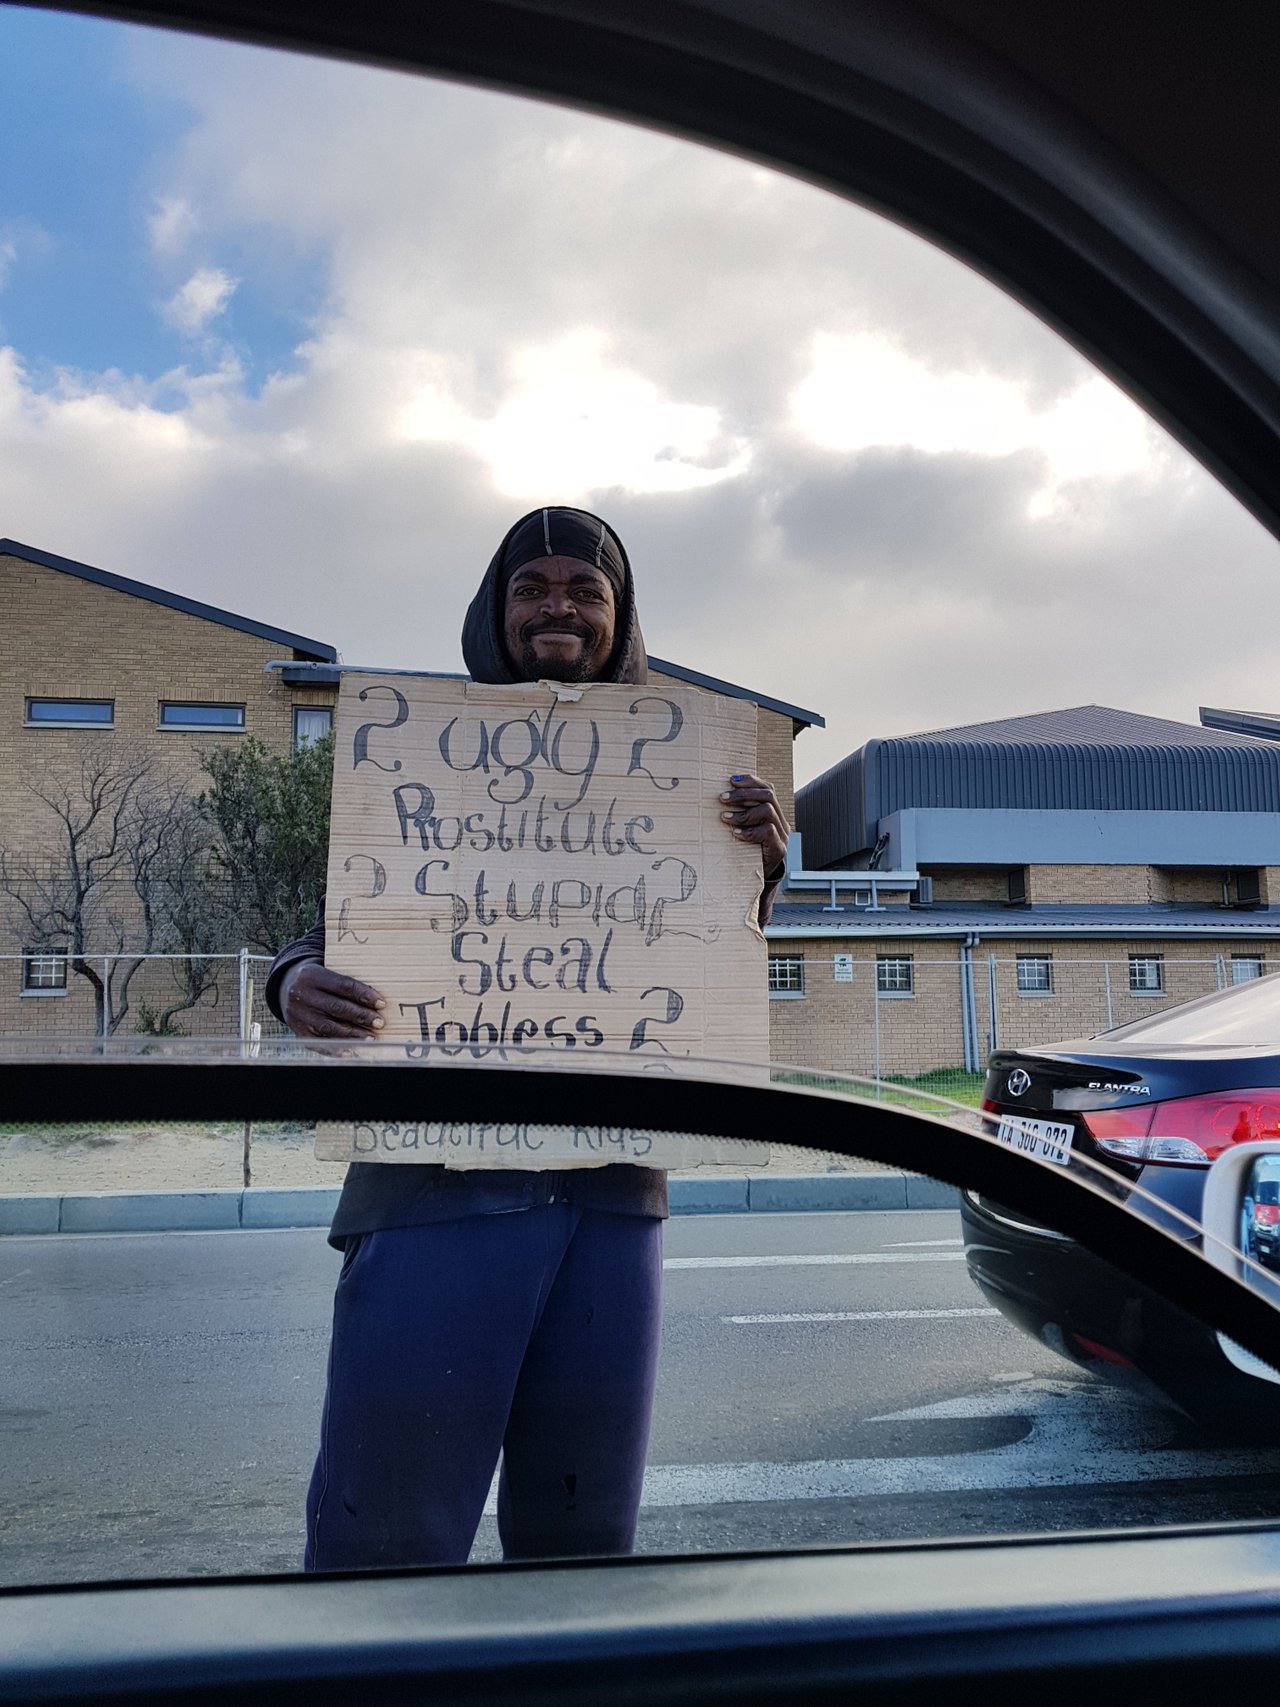 2 ugly 2
Prostitute
2 Stupid 2
Steal
Jobless 2
Beautiful Kids
ELANTRA
CA 360 872